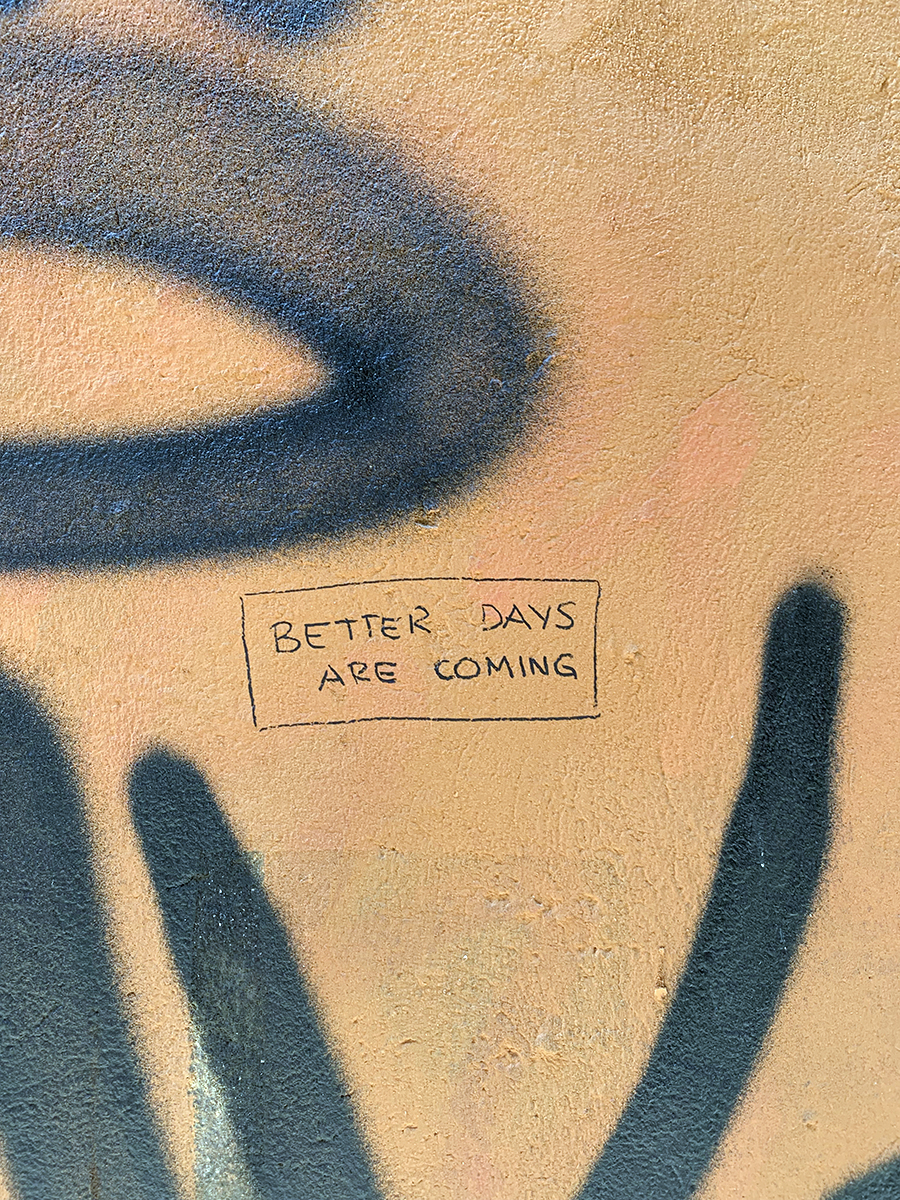 BETTER DAYS
ARE COMING